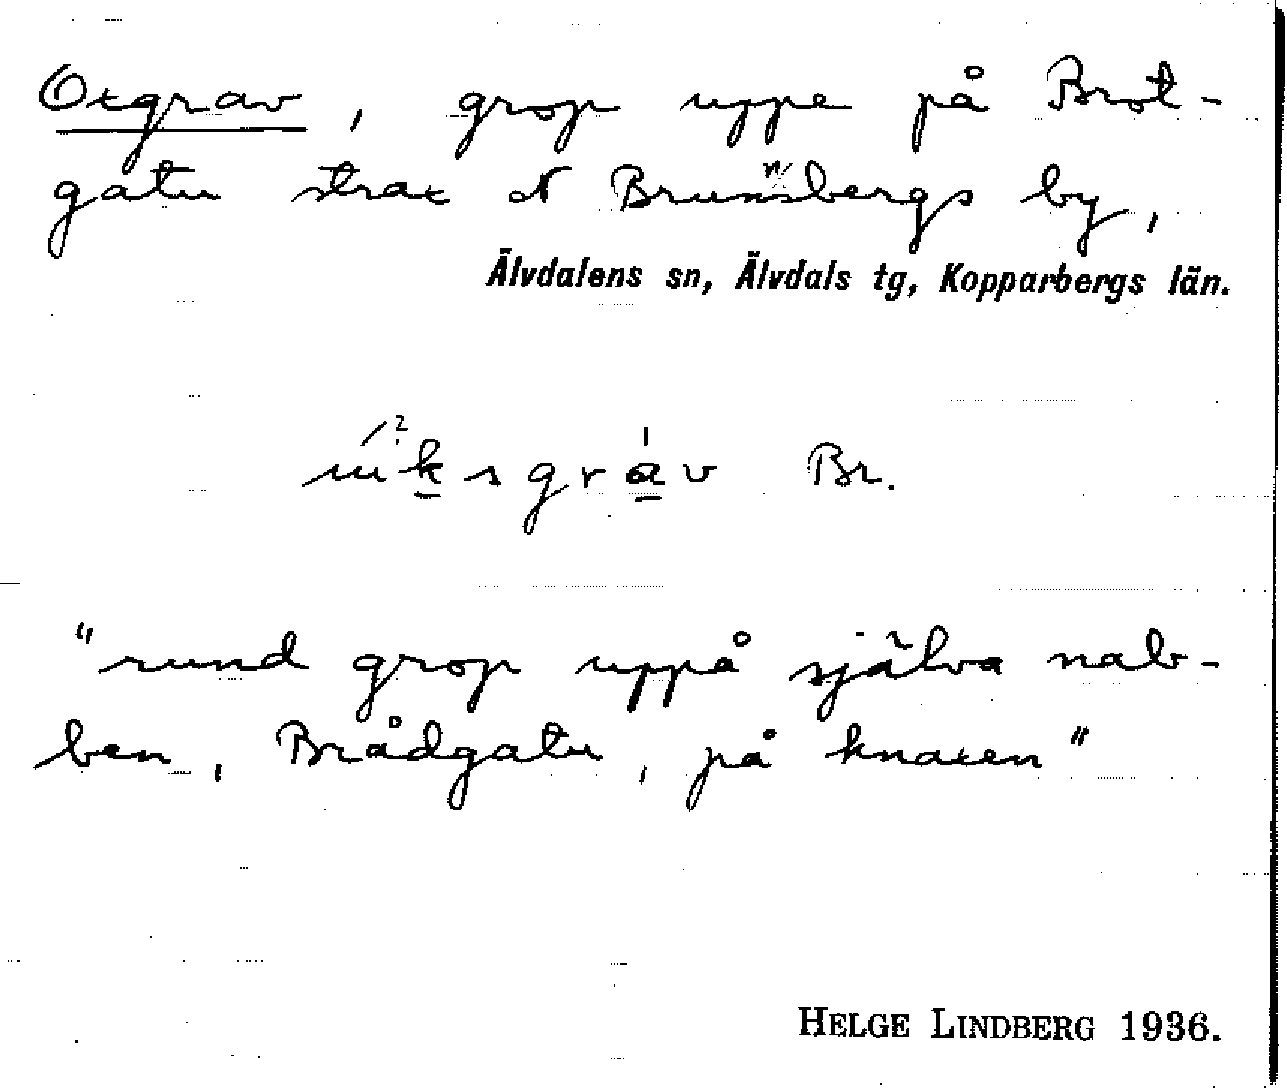 Oxgrav, grop uppe på Brot-
gatu strax N Brunnsbergs by,
Älvdalens sn, Älvdals tg, Kopparbergs län.
Br.
"rund grop uppå själva nab-
ben, Brådgatu, på knaxen"
HELGE LINDBERG 1936.